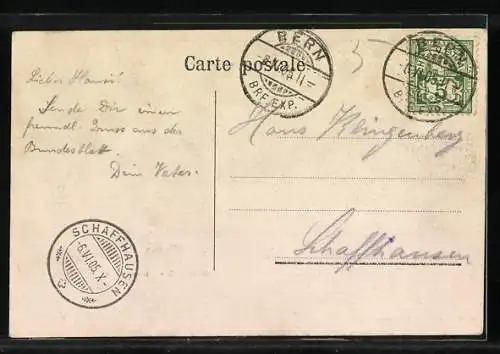 Carte postale.
BERN
BRF. EXP.
BERN
5
Lieber Hansi!
Sende Dir einen
freundl. Gruss aus der
Bundesstadt.
Dein Vater.
Hans Klingenberg
Schaffhausen
SCHAFFHAUSEN
-6.VI.05.X-